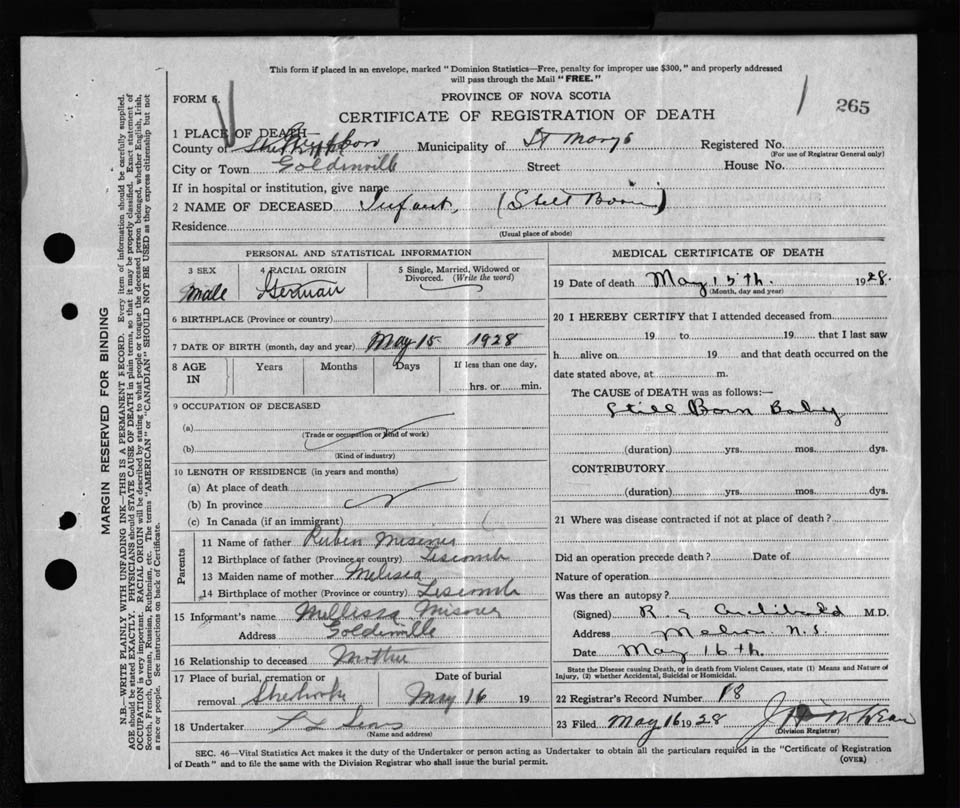 This form if placed in an envelope, marked "Dominion Statistics—Free, penalty for improper use $300," and properly addressed
will pass through the Mail "FREE."
FORM 6.
PROVINCE OF NOVA SCOTIA
265
CERTIFICATE OF REGISTRATION OF DEATH
1 PLACE OF DEATH—
County of Municipality of St Marys Registered No.
(For use of Registrar General only)
City or Town Goldinville Street House No.
If in hospital or institution, give name
2 NAME OF DECEASED Infant, (Still Born)
Residence
(Usual place of abode)
PERSONAL AND STATISTICAL INFORMATION
3 SEX 4 RACIAL ORIGIN 5 Single, Married, Widowed or
Divorced. (Write the word)
Male German
6 BIRTHPLACE (Province or country)
7 DATE OF BIRTH (month, day and year) May 15 1928
8 AGE
IN
Years Months Days If less than one day,
hrs. or min.
9 OCCUPATION OF DECEASED
(a)
(Trade or occupation or kind of work)
(b)
(Kind of industry)
10 LENGTH OF RESIDENCE (in years and months)
(a) At place of death
(b) In province
(c) In Canada (if an immigrant)
Parents
11 Name of father Ruben Misener
12 Birthplace of father (Province or country) Liscomb
13 Maiden name of mother Melissa
14 Birthplace of mother (Province or country) Liscomb
15 Informant's name Mellissa Misener
Address Goldinville
16 Relationship to deceased Mother
17 Place of burial, cremation or Date of burial
removal Sherbrooke May 16 19
18 Undertaker
(Name and address)
MEDICAL CERTIFICATE OF DEATH
19 Date of death May 15th. 1928.
(Month, day and year)
20 I HEREBY CERTIFY that I attended deceased from
19 to 19 that I last saw
h alive on 19 and that death occurred on the
date stated above, at m.
The CAUSE of DEATH was as follows:—
Still Born Baby
(duration) yrs. mos. dys.
CONTRIBUTORY
(duration) yrs. mos. dys.
21 Where was disease contracted if not at place of death?
Did an operation precede death? Date of
Nature of operation
Was there an autopsy?
(Signed) Archibald M.D.
Address N.S.
Date May 16th.
State the Disease causing Death, or in death from Violent Causes, state (1) Means and Nature of
Injury, (2) whether Accidental, Suicidal or Homicidal.
22 Registrar's Record Number 18
23 Filed May 16 1928
(Division Registrar)
SEC. 46—Vital Statistics Act makes it the duty of the Undertaker or person acting as Undertaker to obtain all the particulars required in the "Certificate of Registration
of Death" and to file the same with the Division Registrar who shall issue the burial permit.
(OVER)
MARGIN RESERVED FOR BINDING
N.B.—WRITE PLAINLY WITH UNFADING INK—THIS IS A PERMANENT RECORD. Every item of information should be carefully supplied.
AGE should be stated EXACTLY. PHYSICIANS should STATE CAUSE OF DEATH in plain terms, so that it may be properly classified. Exact statement of
OCCUPATION is very important. RACIAL ORIGIN will be described by stating to what people or tongue the deceased person belonged, whether English, Irish,
Scotch, French, German, Russian, Ruthenian, etc. The terms "AMERICAN" or "CANADIAN" SHOULD NOT BE USED as they express citizenship but not
a race or people. See instructions on back of Certificate.